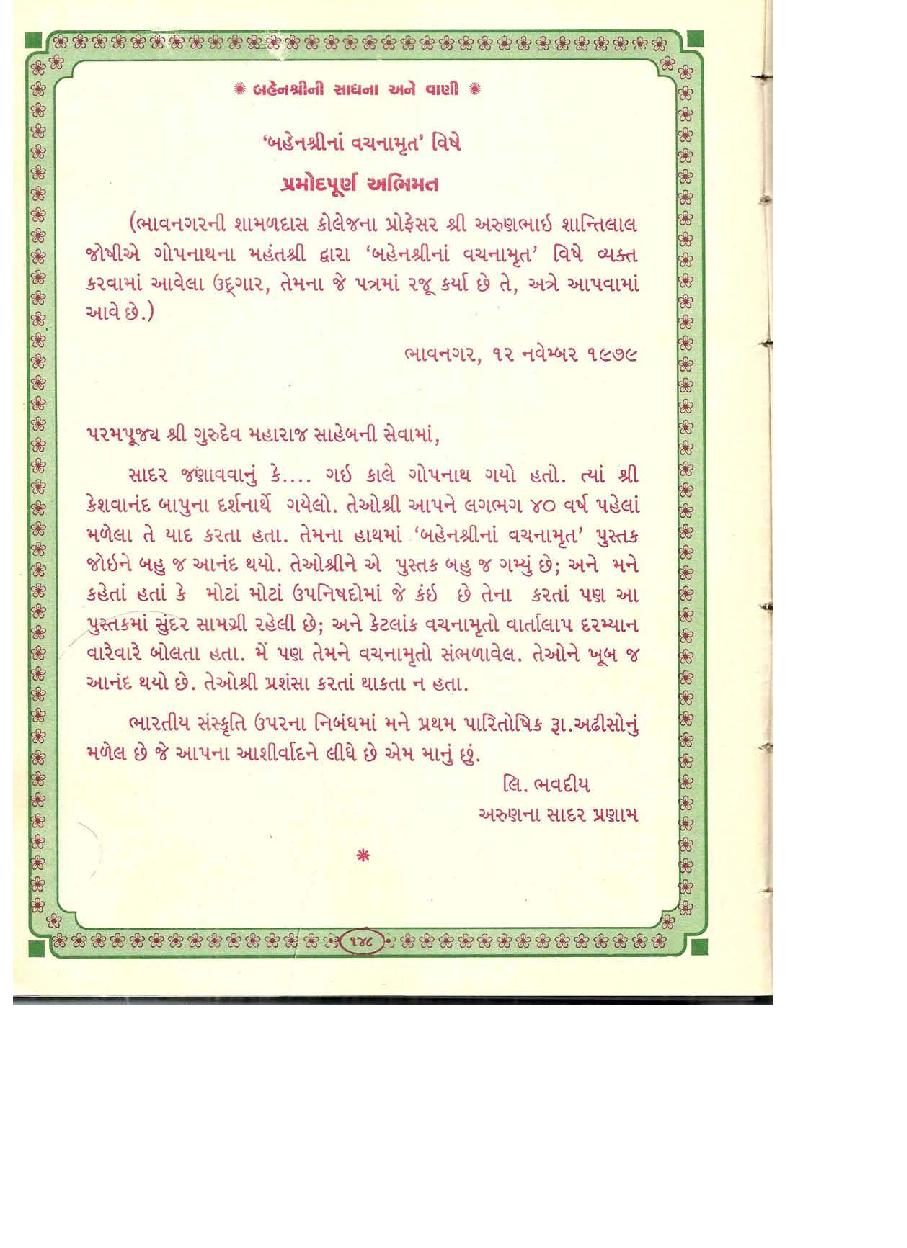 ❋ બહેનશ્રીની સાધના અને વાણી ❋
‘બહેનશ્રીનાં વચનામૃત’ વિષે
પ્રમોદપૂર્ણ અભિમત
(ભાવનગરની શામળદાસ કોલેજના પ્રોફેસર શ્રી અરુણભાઇ શાન્તિલાલ
જોષીએ ગોપનાથના મહંતશ્રી દ્વારા ‘બહેનશ્રીનાં વચનામૃત’ વિષે વ્યક્ત
કરવામાં આવેલા ઉદ્ગાર, તેમના જે પત્રમાં રજૂ કર્યા છે તે, અત્રે આપવામાં
આવે છે.)
ભાવનગર, ૧૨ નવેમ્બર ૧૯૭૯
પરમપૂજ્ય શ્રી ગુરુદેવ મહારાજ સાહેબની સેવામાં,
સાદર જણાવવાનું કે.... ગઇ કાલે ગોપનાથ ગયો હતો. ત્યાં શ્રી
કેશવાનંદ બાપુના દર્શનાર્થે ગયેલો. તેઓશ્રી આપને લગભગ ૪૦ વર્ષ પહેલાં
મળેલા તે યાદ કરતા હતા. તેમના હાથમાં ‘બહેનશ્રીનાં વચનામૃત’ પુસ્તક
જોઇને બહુ જ આનંદ થયો. તેઓશ્રીને એ પુસ્તક બહુ જ ગમ્યું છે; અને મને
કહેતાં હતાં કે મોટાં મોટાં ઉપનિષદોમાં જે કંઇ છે તેના કરતાં પણ આ
પુસ્તકમાં સુંદર સામગ્રી રહેલી છે; અને કેટલાંક વચનામૃતો વાર્તાલાપ દરમ્યાન
વારેવારે બોલતા હતા. મેં પણ તેમને વચનામૃતો સંભળાવેલ. તેઓને ખૂબ જ
આનંદ થયો છે. તેઓશ્રી પ્રશંસા કરતાં થાકતા ન હતા.
ભારતીય સંસ્કૃતિ ઉપરના નિબંધમાં મને પ્રથમ પારિતોષિક રૂા.અઢીસોનું
મળેલ છે જે આપના આશીર્વાદને લીધે છે એમ માનું છું.
લિ. ભવદીય
અરુણના સાદર પ્રણામ
❋
૧૪૮